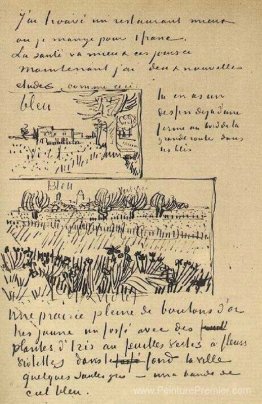 J'ai trouvé un restaurant mieux
où je mange pour 1 franc.
La santé va mieux ces jours ci
Maintenant j'ai deux nouvelles
études comme ceci
bleu
tu en as un
dessin déjà d'une
ferme au bord de la
grande route dans
les blés
Bleu
Une prairie pleine de boutons d'or
très jaune un fossé avec des
plantes d'Iris aux feuilles vertes à fleurs
violettes dans le fond la ville
quelques saules gris — une bande de
ciel bleu.
www.PeinturePremier.com